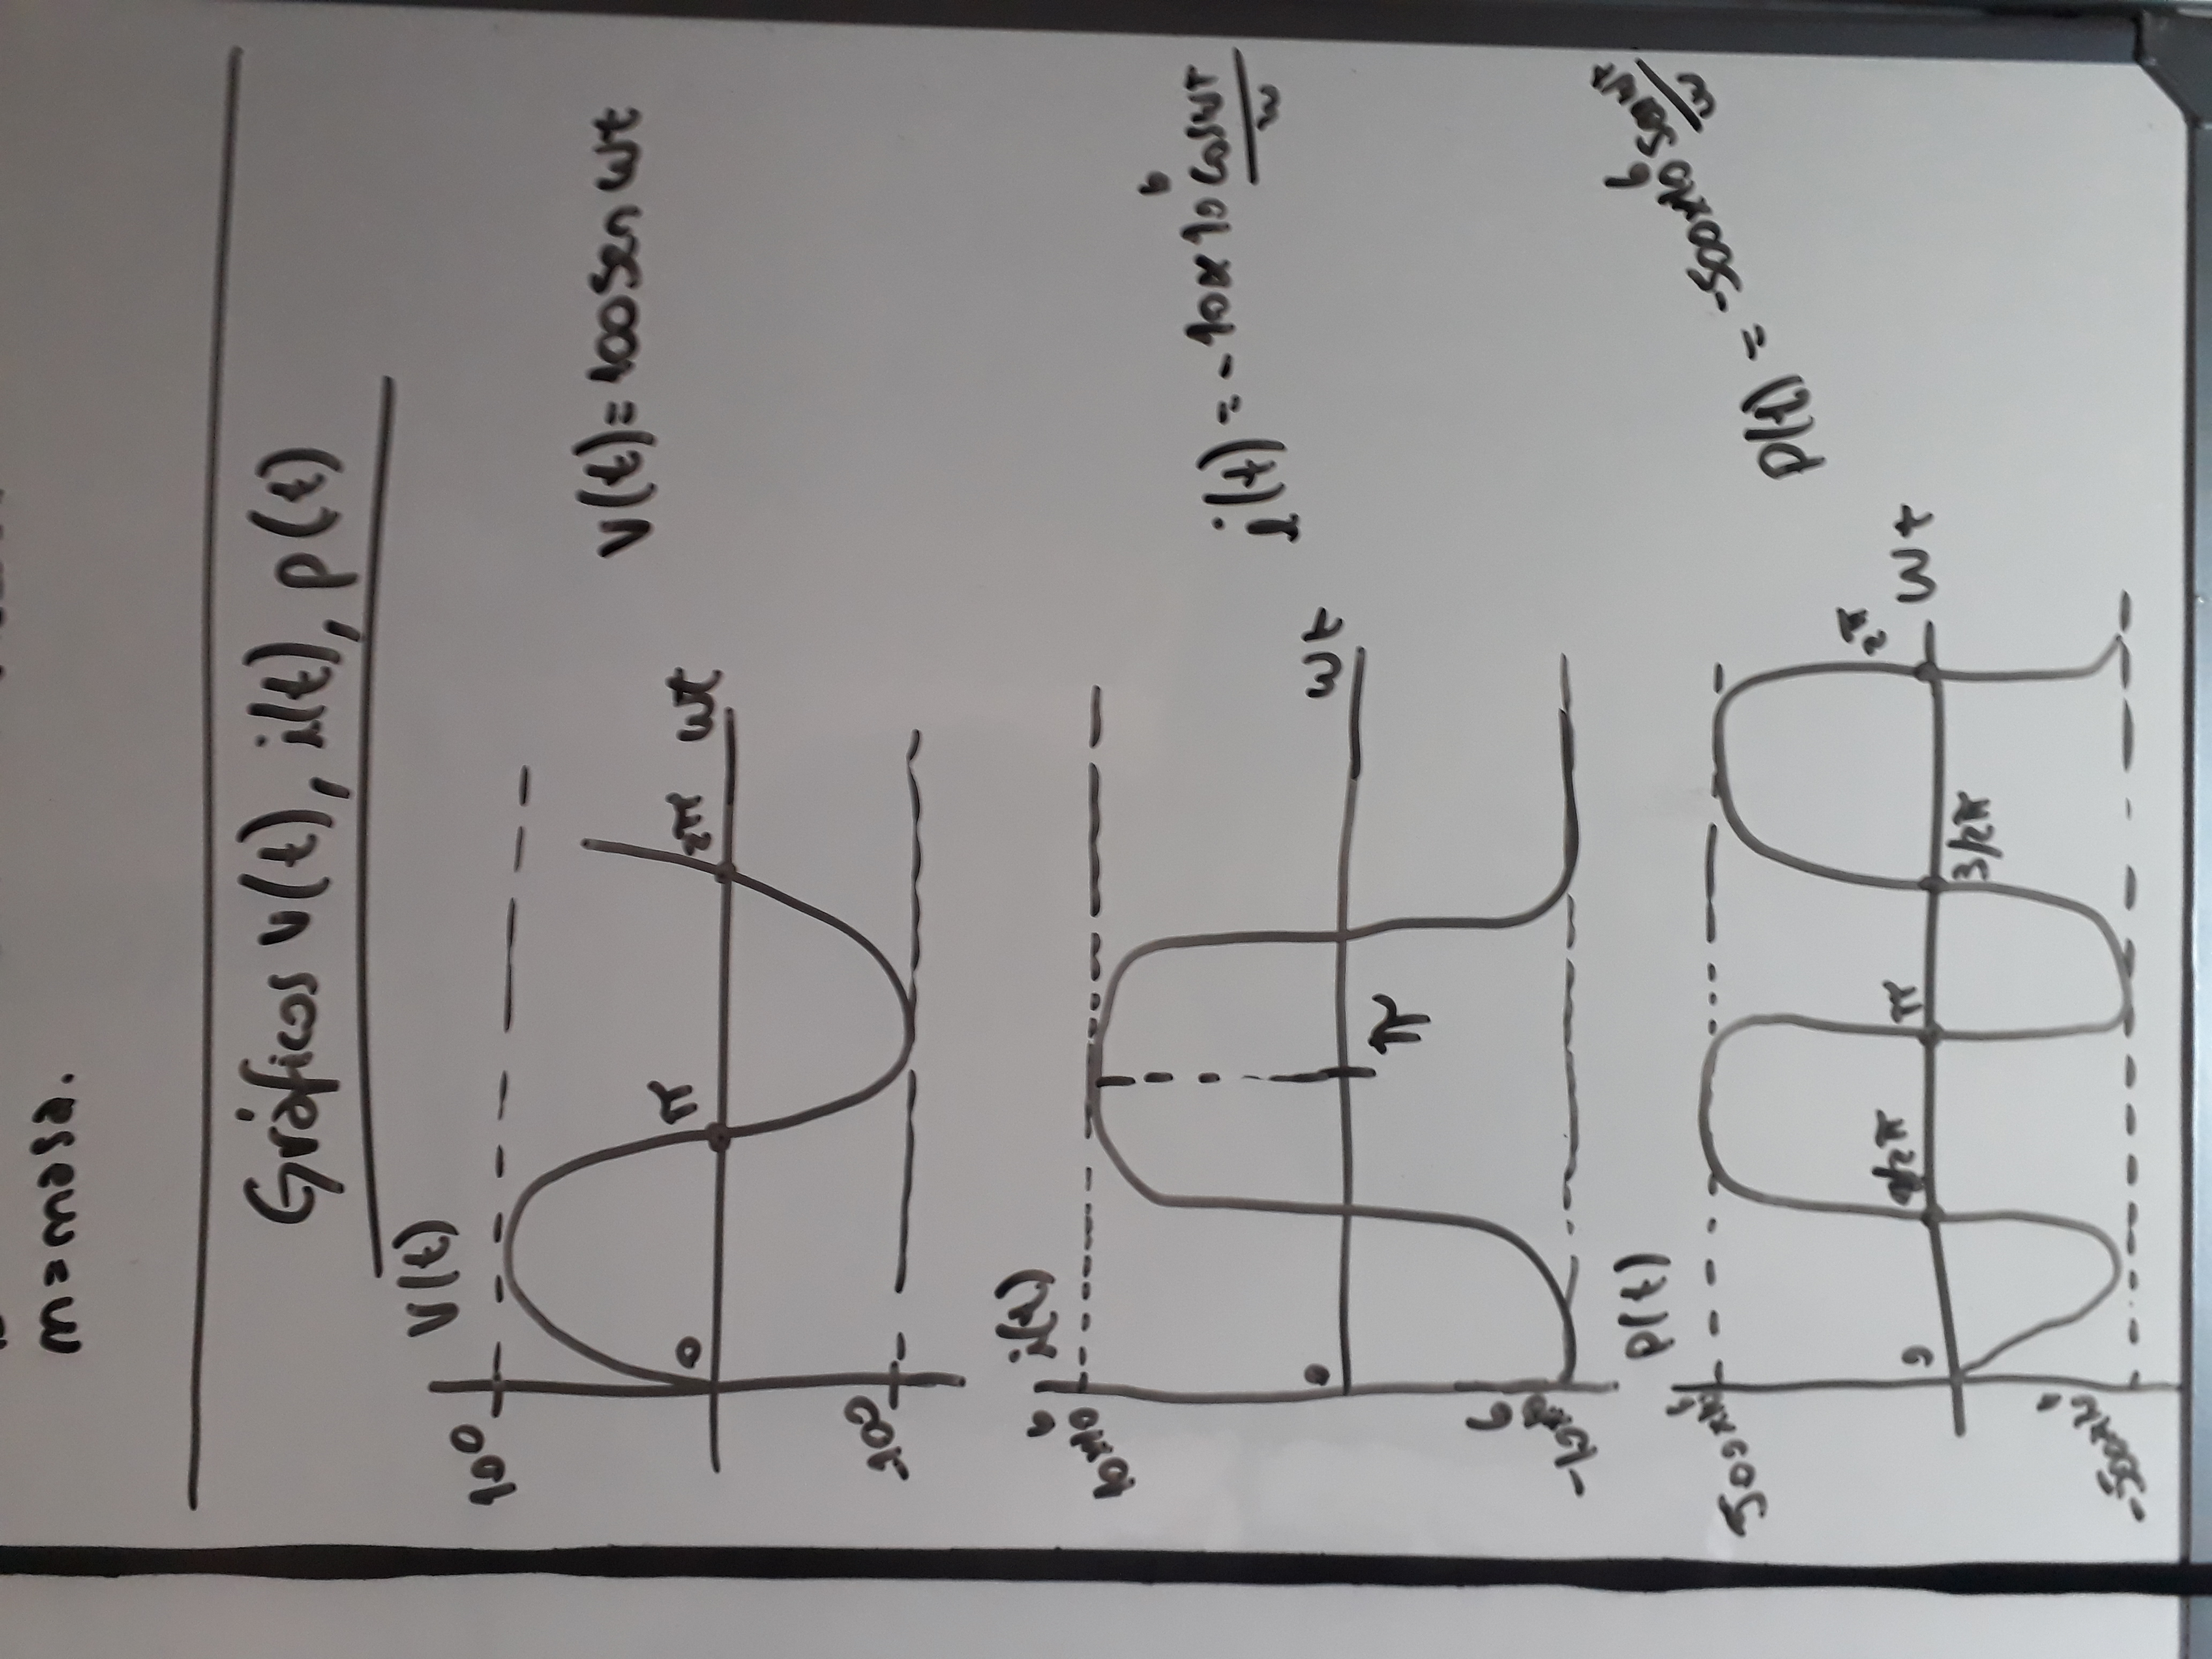 m=masa.
Gráficos v(t), i(t), p(t)
V(t)
100
0
π
2π
wt
-100
V(t)=100 sen wt
i(t)
10x10^6
0
wt
π
-10x10^6
i(t) = -10x10^6 cos wt / w
P(t)
500x10^6
0
1/2π
π
3/2π
2π
wt
P(t) = -500x10^6 sen wt / w